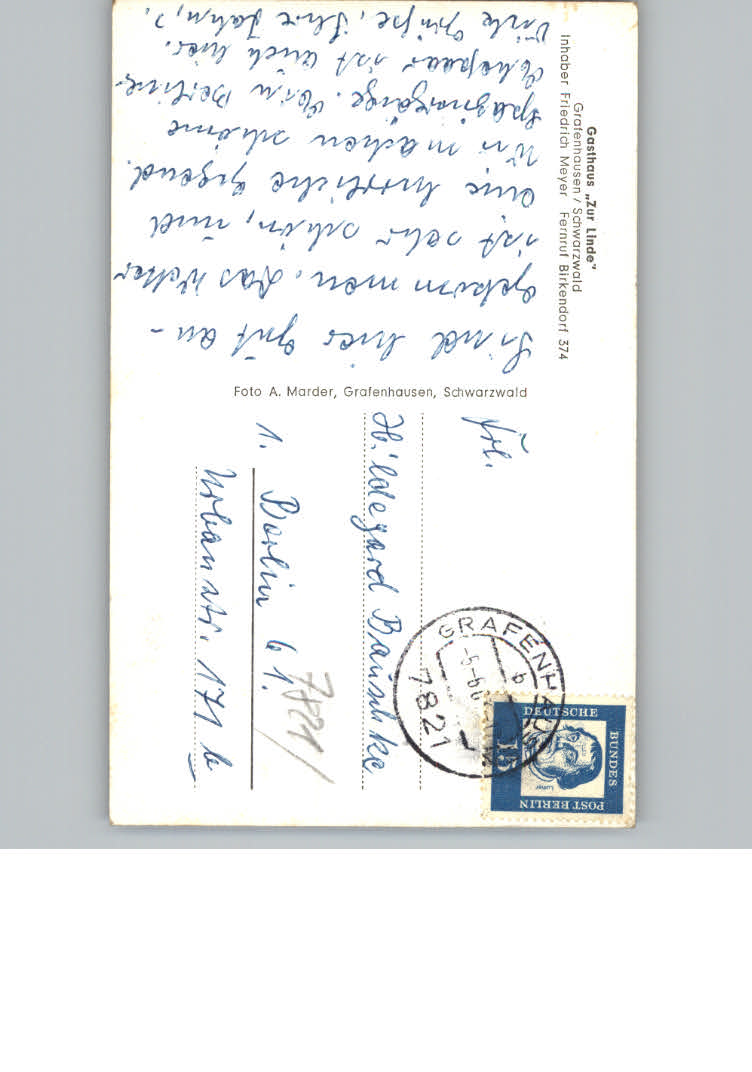 Gasthaus „Zur Linde“
Grafenhausen / Schwarzwald
Inhaber Friedrich Meyer Fernruf Birkendorf 374
Sind hier gut an-
gekommen. Das Wetter
ist sehr schön, und
eine herrliche Gegend.
Wir machen schöne
Spaziergänge. Ein Berliner
Ehepaar ist auch hier.
Viele Grüße, Ihre
Foto A. Marder, Grafenhausen, Schwarzwald
Frl.
Hildegard Bauschke
1. Berlin 61.
Urbanstr. 171 b
7821
GRAFENH
7821
b
DEUTSCHE
BUNDES
POST BERLIN
15
Luther